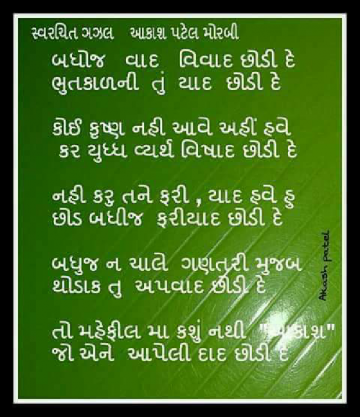 સ્વરચિત ગઝલ આકાશ પટેલ મોરબી
બધોજ વાદ વિવાદ છોડી દે
ભુતકાળની તું યાદ છોડી દે
કોઈ કૃષ્ણ નહી આવે અહીં હવે
કર યુધ્ધ વ્યર્થ વિષાદ છોડી દે
નહી કરુ તને ફરી , યાદ હવે હુ
છોડ બધીજ ફરીયાદ છોડી દે
બધુજ ન ચાલે ગણતરી મુજબ
થોડાક તુ અપવાદ છોડી દે
તો મહેફીલ મા કશું નથી "આકાશ"
જો એને આપેલી દાદ છોડી દે
Akash patel